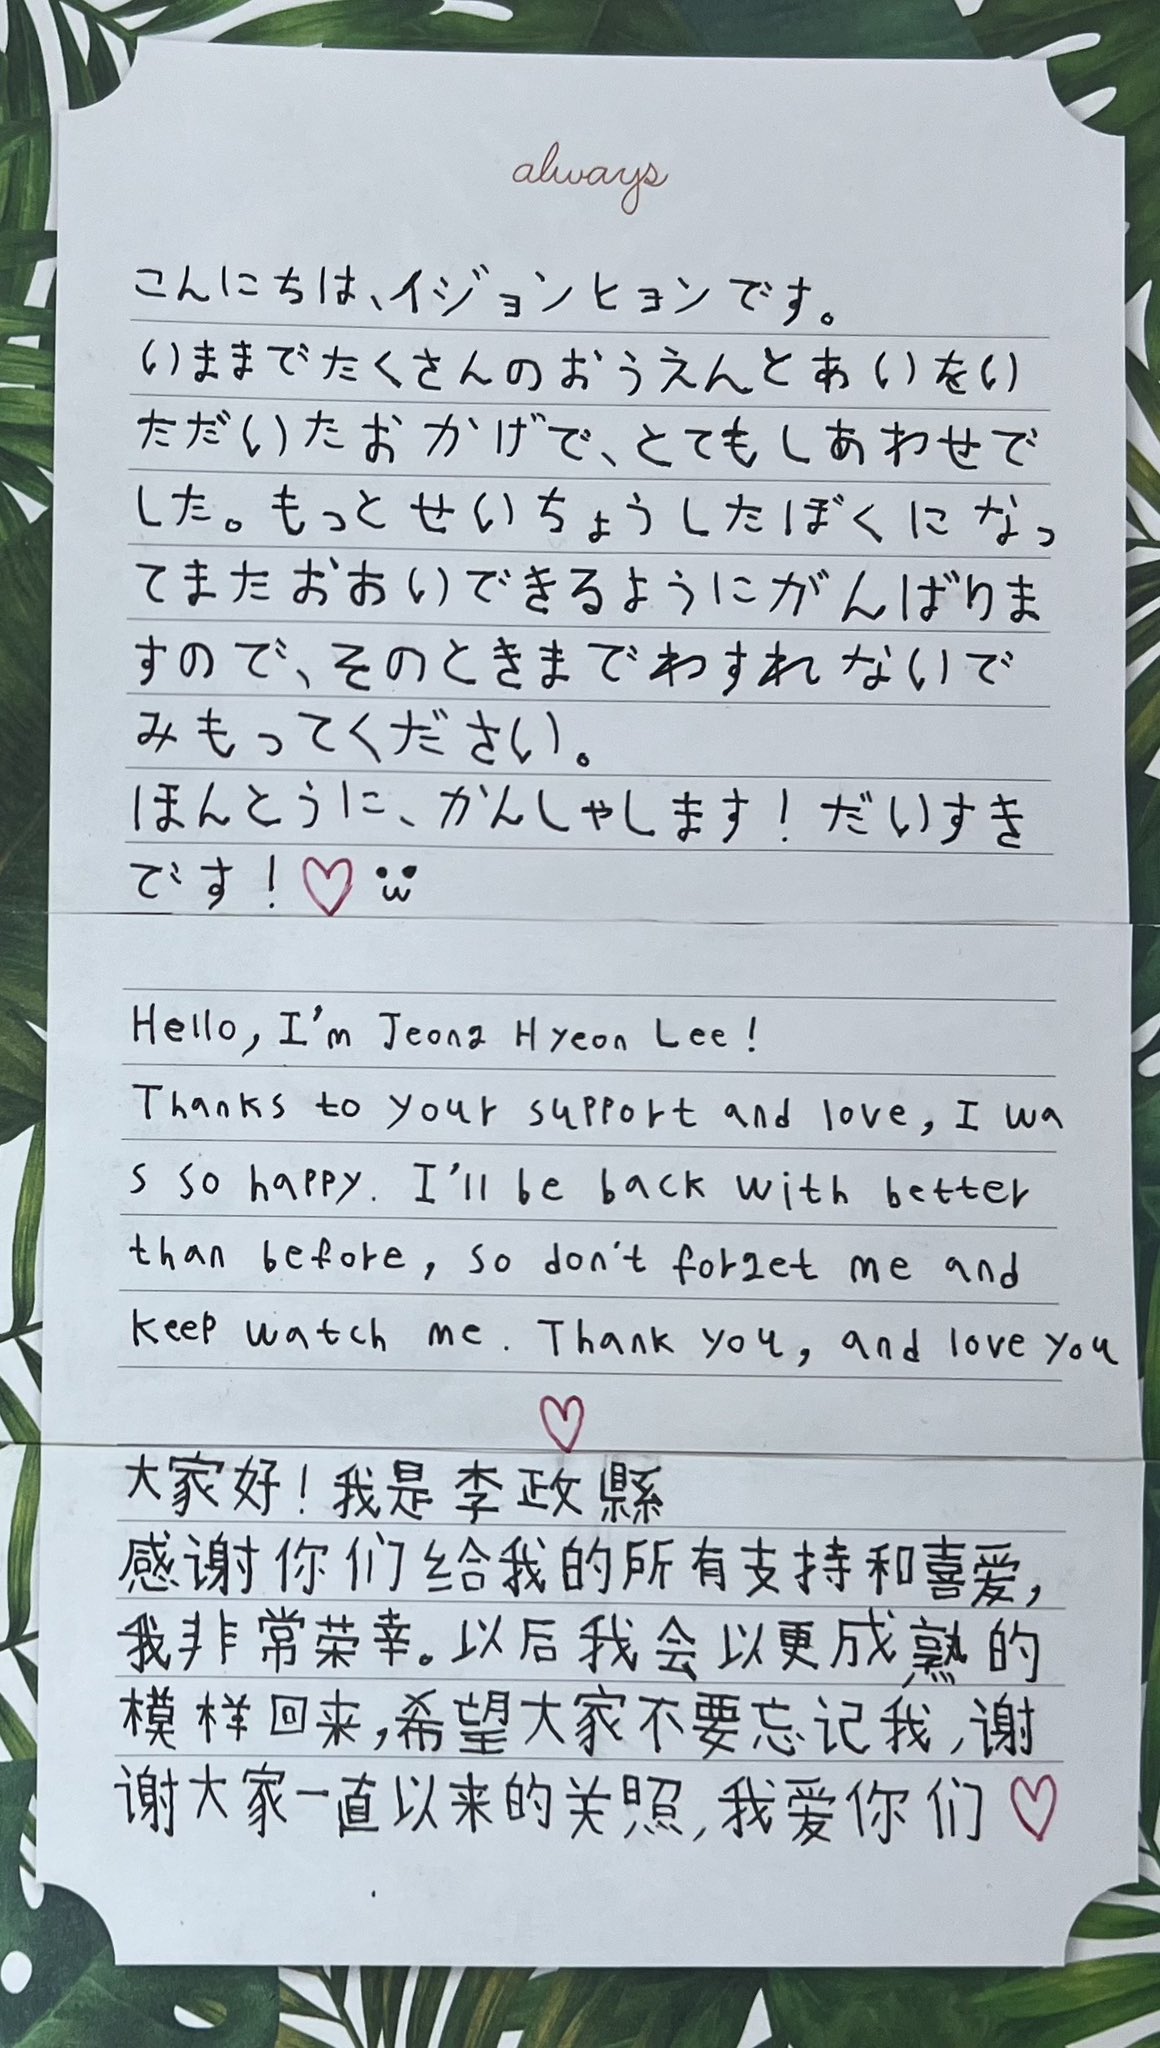 always
こんにちは、イジョンヒョンです。
いままでたくさんのおうえんとあいをい
ただいたおかげで、とてもしあわせで
した。もっとせいちょうしたぼくになっ
てまたおおいできるようにがんばりま
すので、そのときまでわすれないで
みもってください。
ほんとうに、かんしゃします！だいすき
です！♡
Hello, I'm Jeong Hyeon Lee!
Thanks to your support and love, I wa
s so happy. I'll be back with better
than before, so don't forget me and
keep watch me. Thank you, and love you
♡
大家好！我是李政縣
感谢你们给我的所有支持和喜爱,
我非常荣幸。以后我会以更成熟的
模样回来,希望大家不要忘记我,谢
谢大家一直以来的关照,我爱你们♡